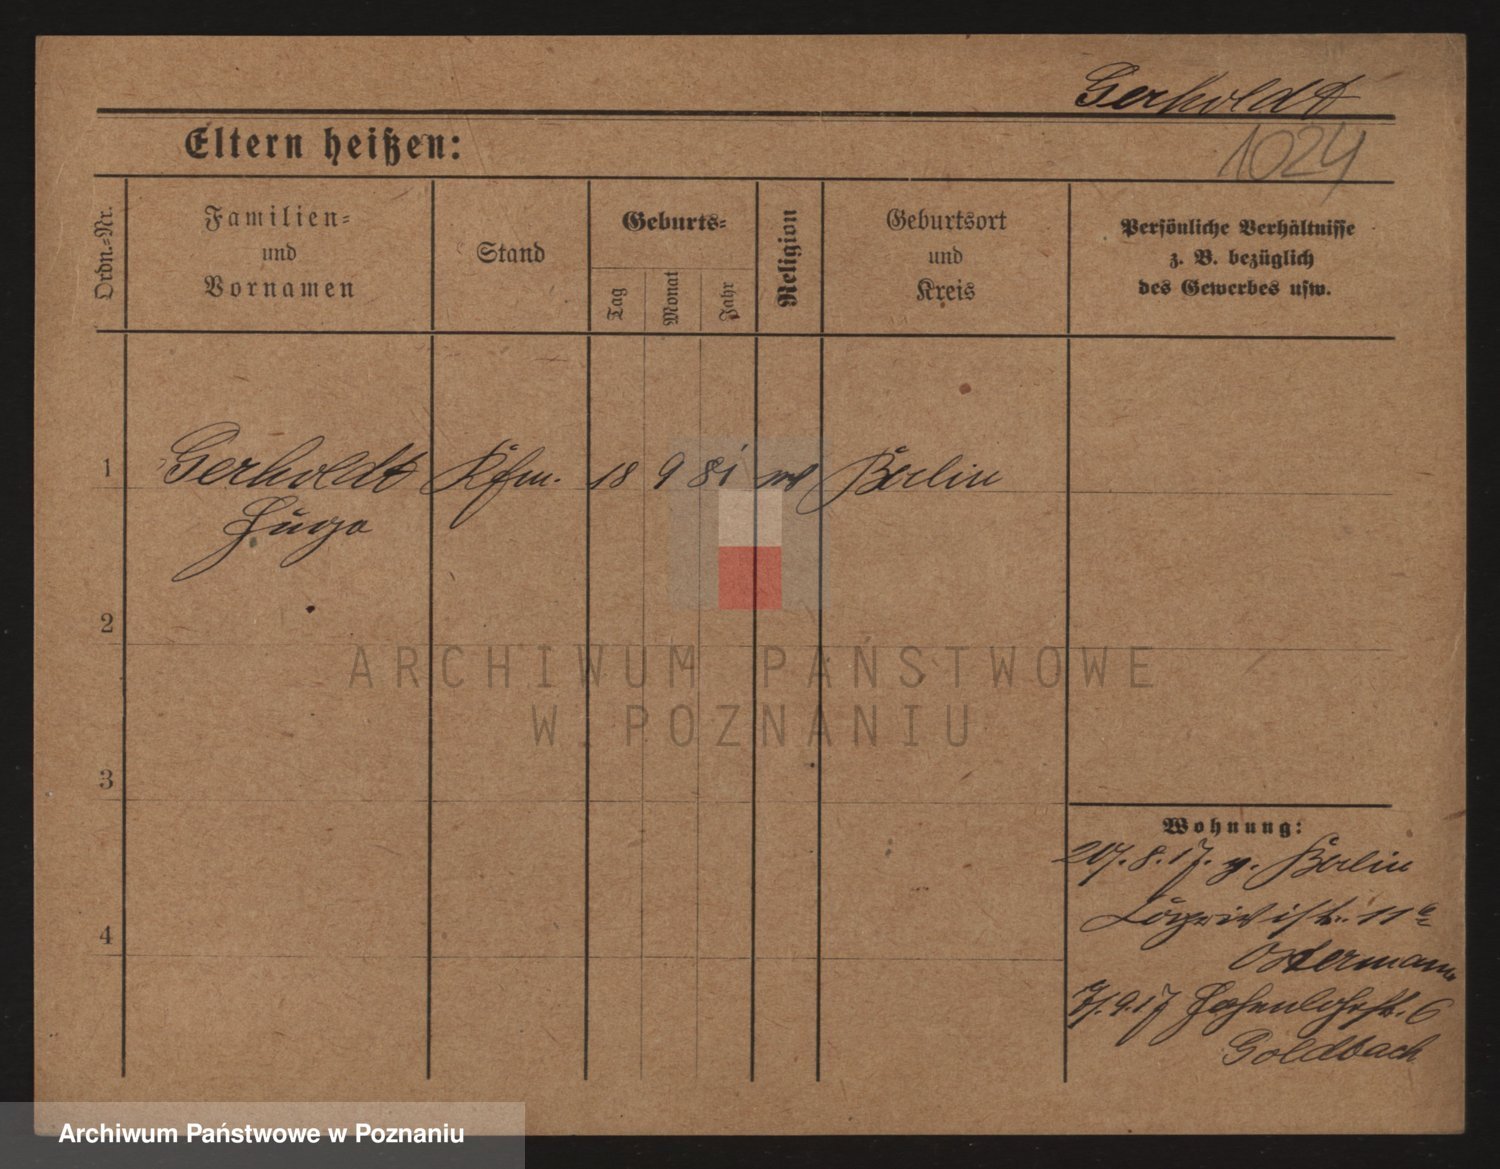 Gerholdt
1024
Eltern heißen:
Ordn.=Nr.
Familien=
und
Vornamen
Stand
Geburts=
Tag
Monat
Jahr
Religion
Geburtsort
und
Kreis
Persönliche Verhältnisse
z. B. bezüglich
des Gewerbes usw.
1
Gerholdt Kfm. 18 9 81 Berlin
Hugo
2
3
4
Wohnung:
8. 17. v. Berlin
11a
Ostermann
9. 17 Hohenlohestr. 6
Goldbach
ARCHIWUM PAŃSTWOWE
W POZNANIU
Archiwum Państwowe w Poznaniu